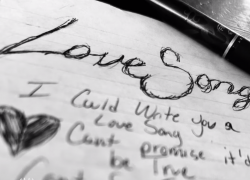 Love Song
I Could Write you a
Love Song
Cant promise it'd
be True